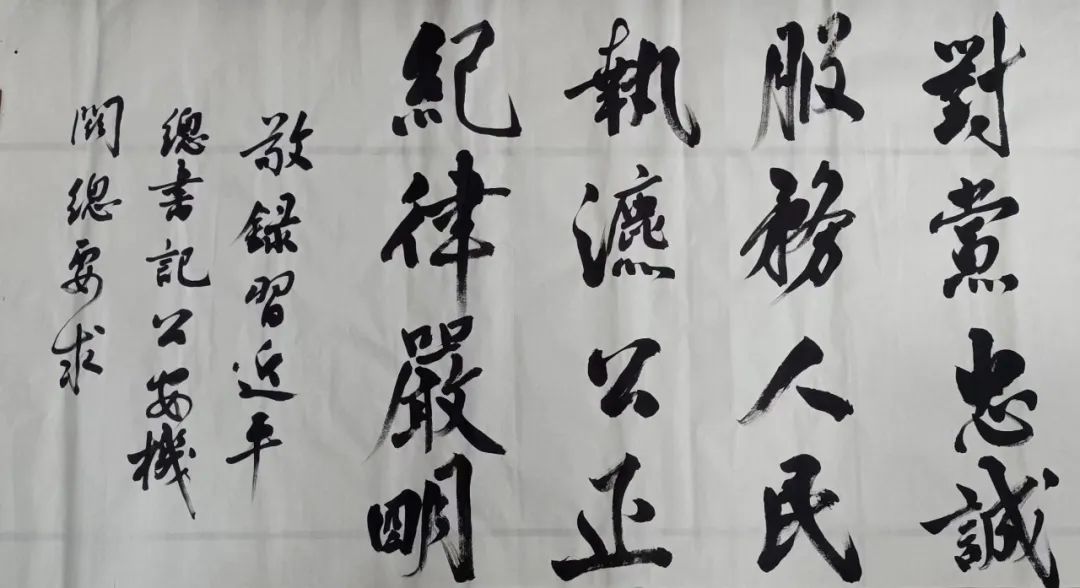 對黨忠誠
服務人民
執灋公正
紀律嚴明
敬録習近平
總書記公安機
関總要求